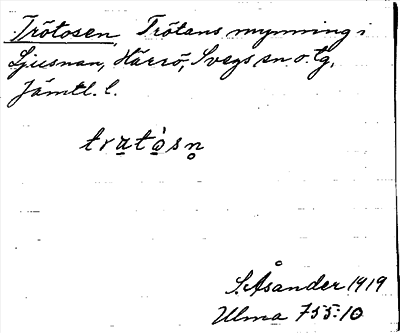 Trötosen, Trötans mynning i
Ljusnan, Härsö, Svegs sn. o. tg,
Jämtl. l.
trʉtò̱sn̥
S. Åsander 1919
Ulma 755:10